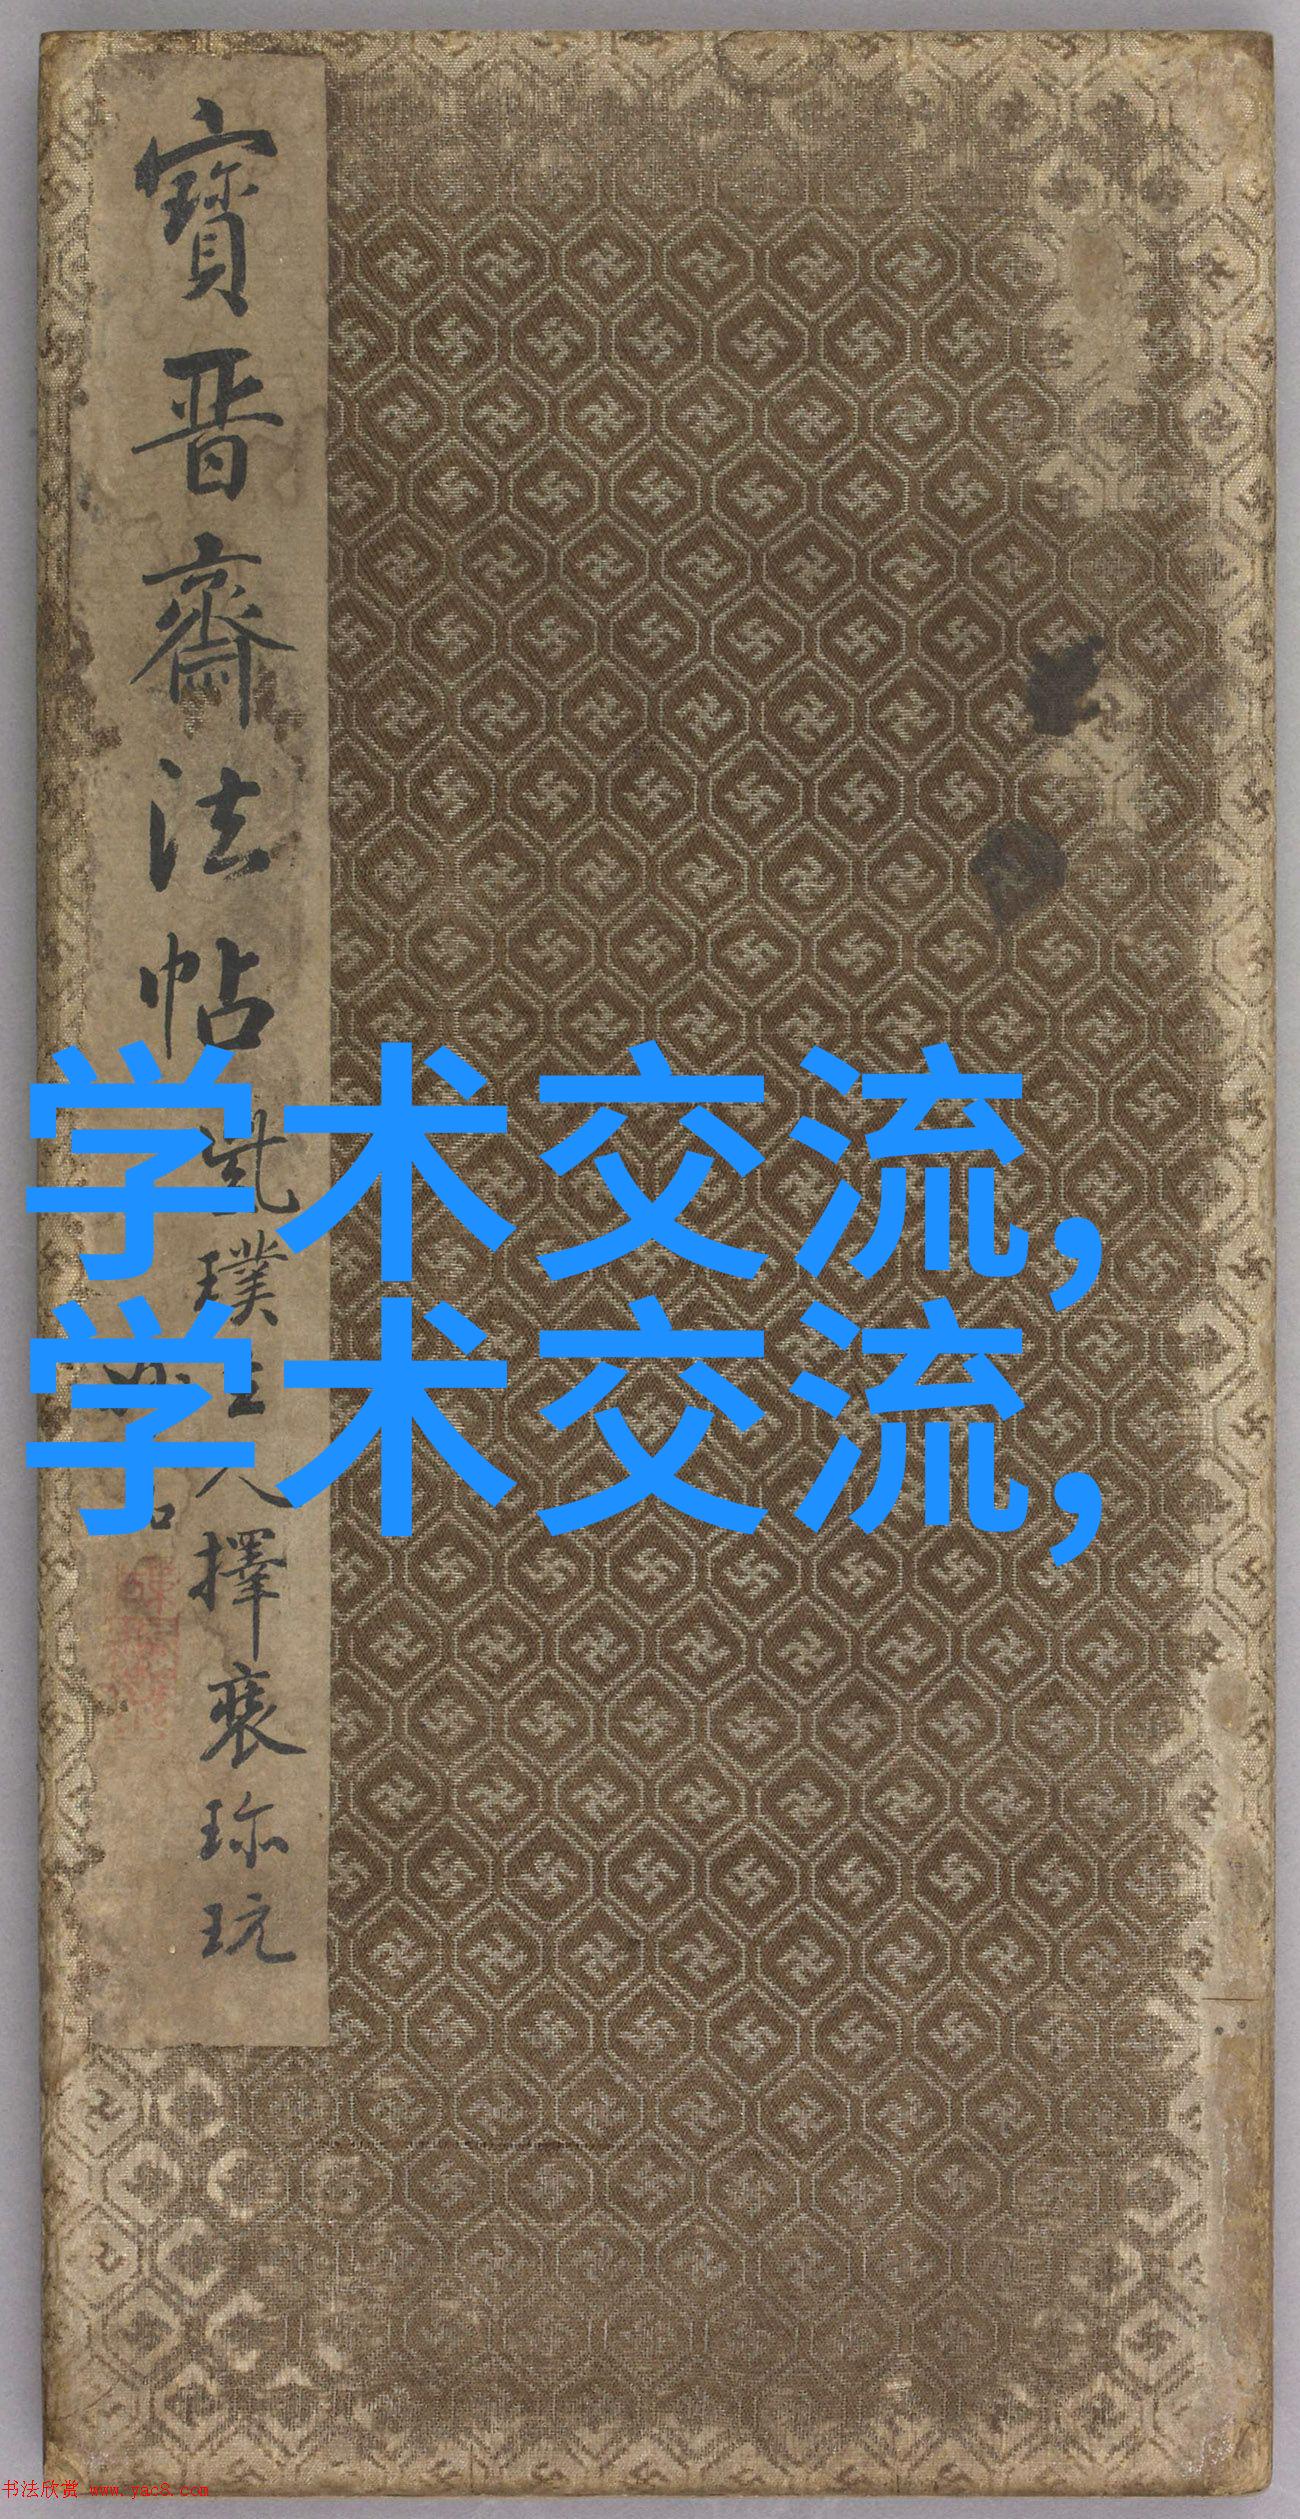 寶晉齋法帖
璞主人擇裘珎玩
学术交流,
学术交流,
书法欣赏 www.yac8.com